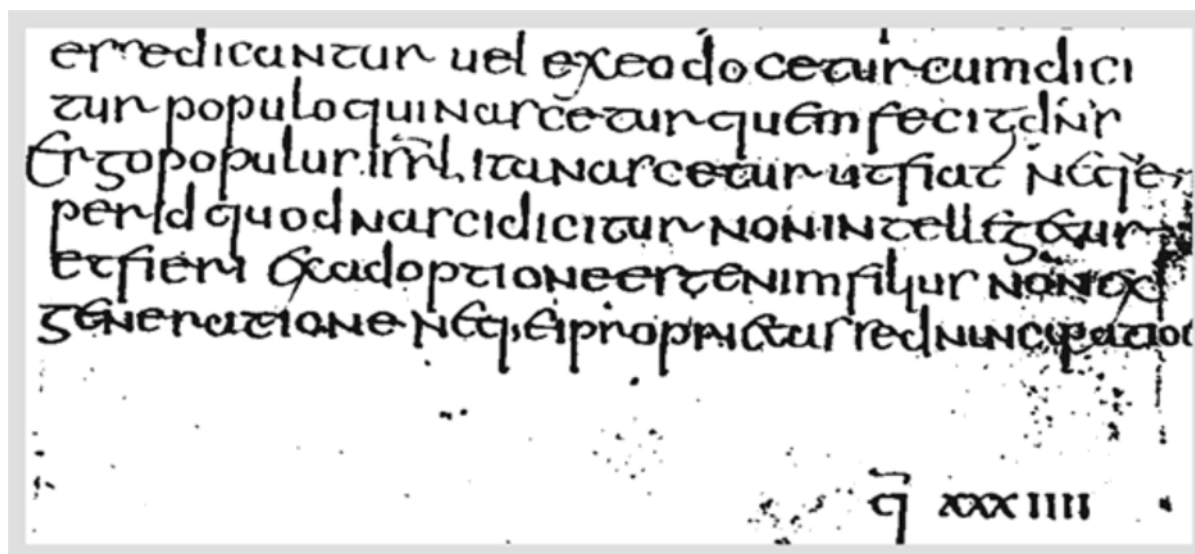 esse dicantur uel ex eo docetur cum dici
tur populo qui nascetur quem fecit dns
Ergo populus isrl ita nascetur ut fiat
per id quod nasci dicitur non intellegetur
et fieri ex adoptione est enim filius non ex
generatione neq; ei proprietas sed nuncupatio
q̄ xxxiiii